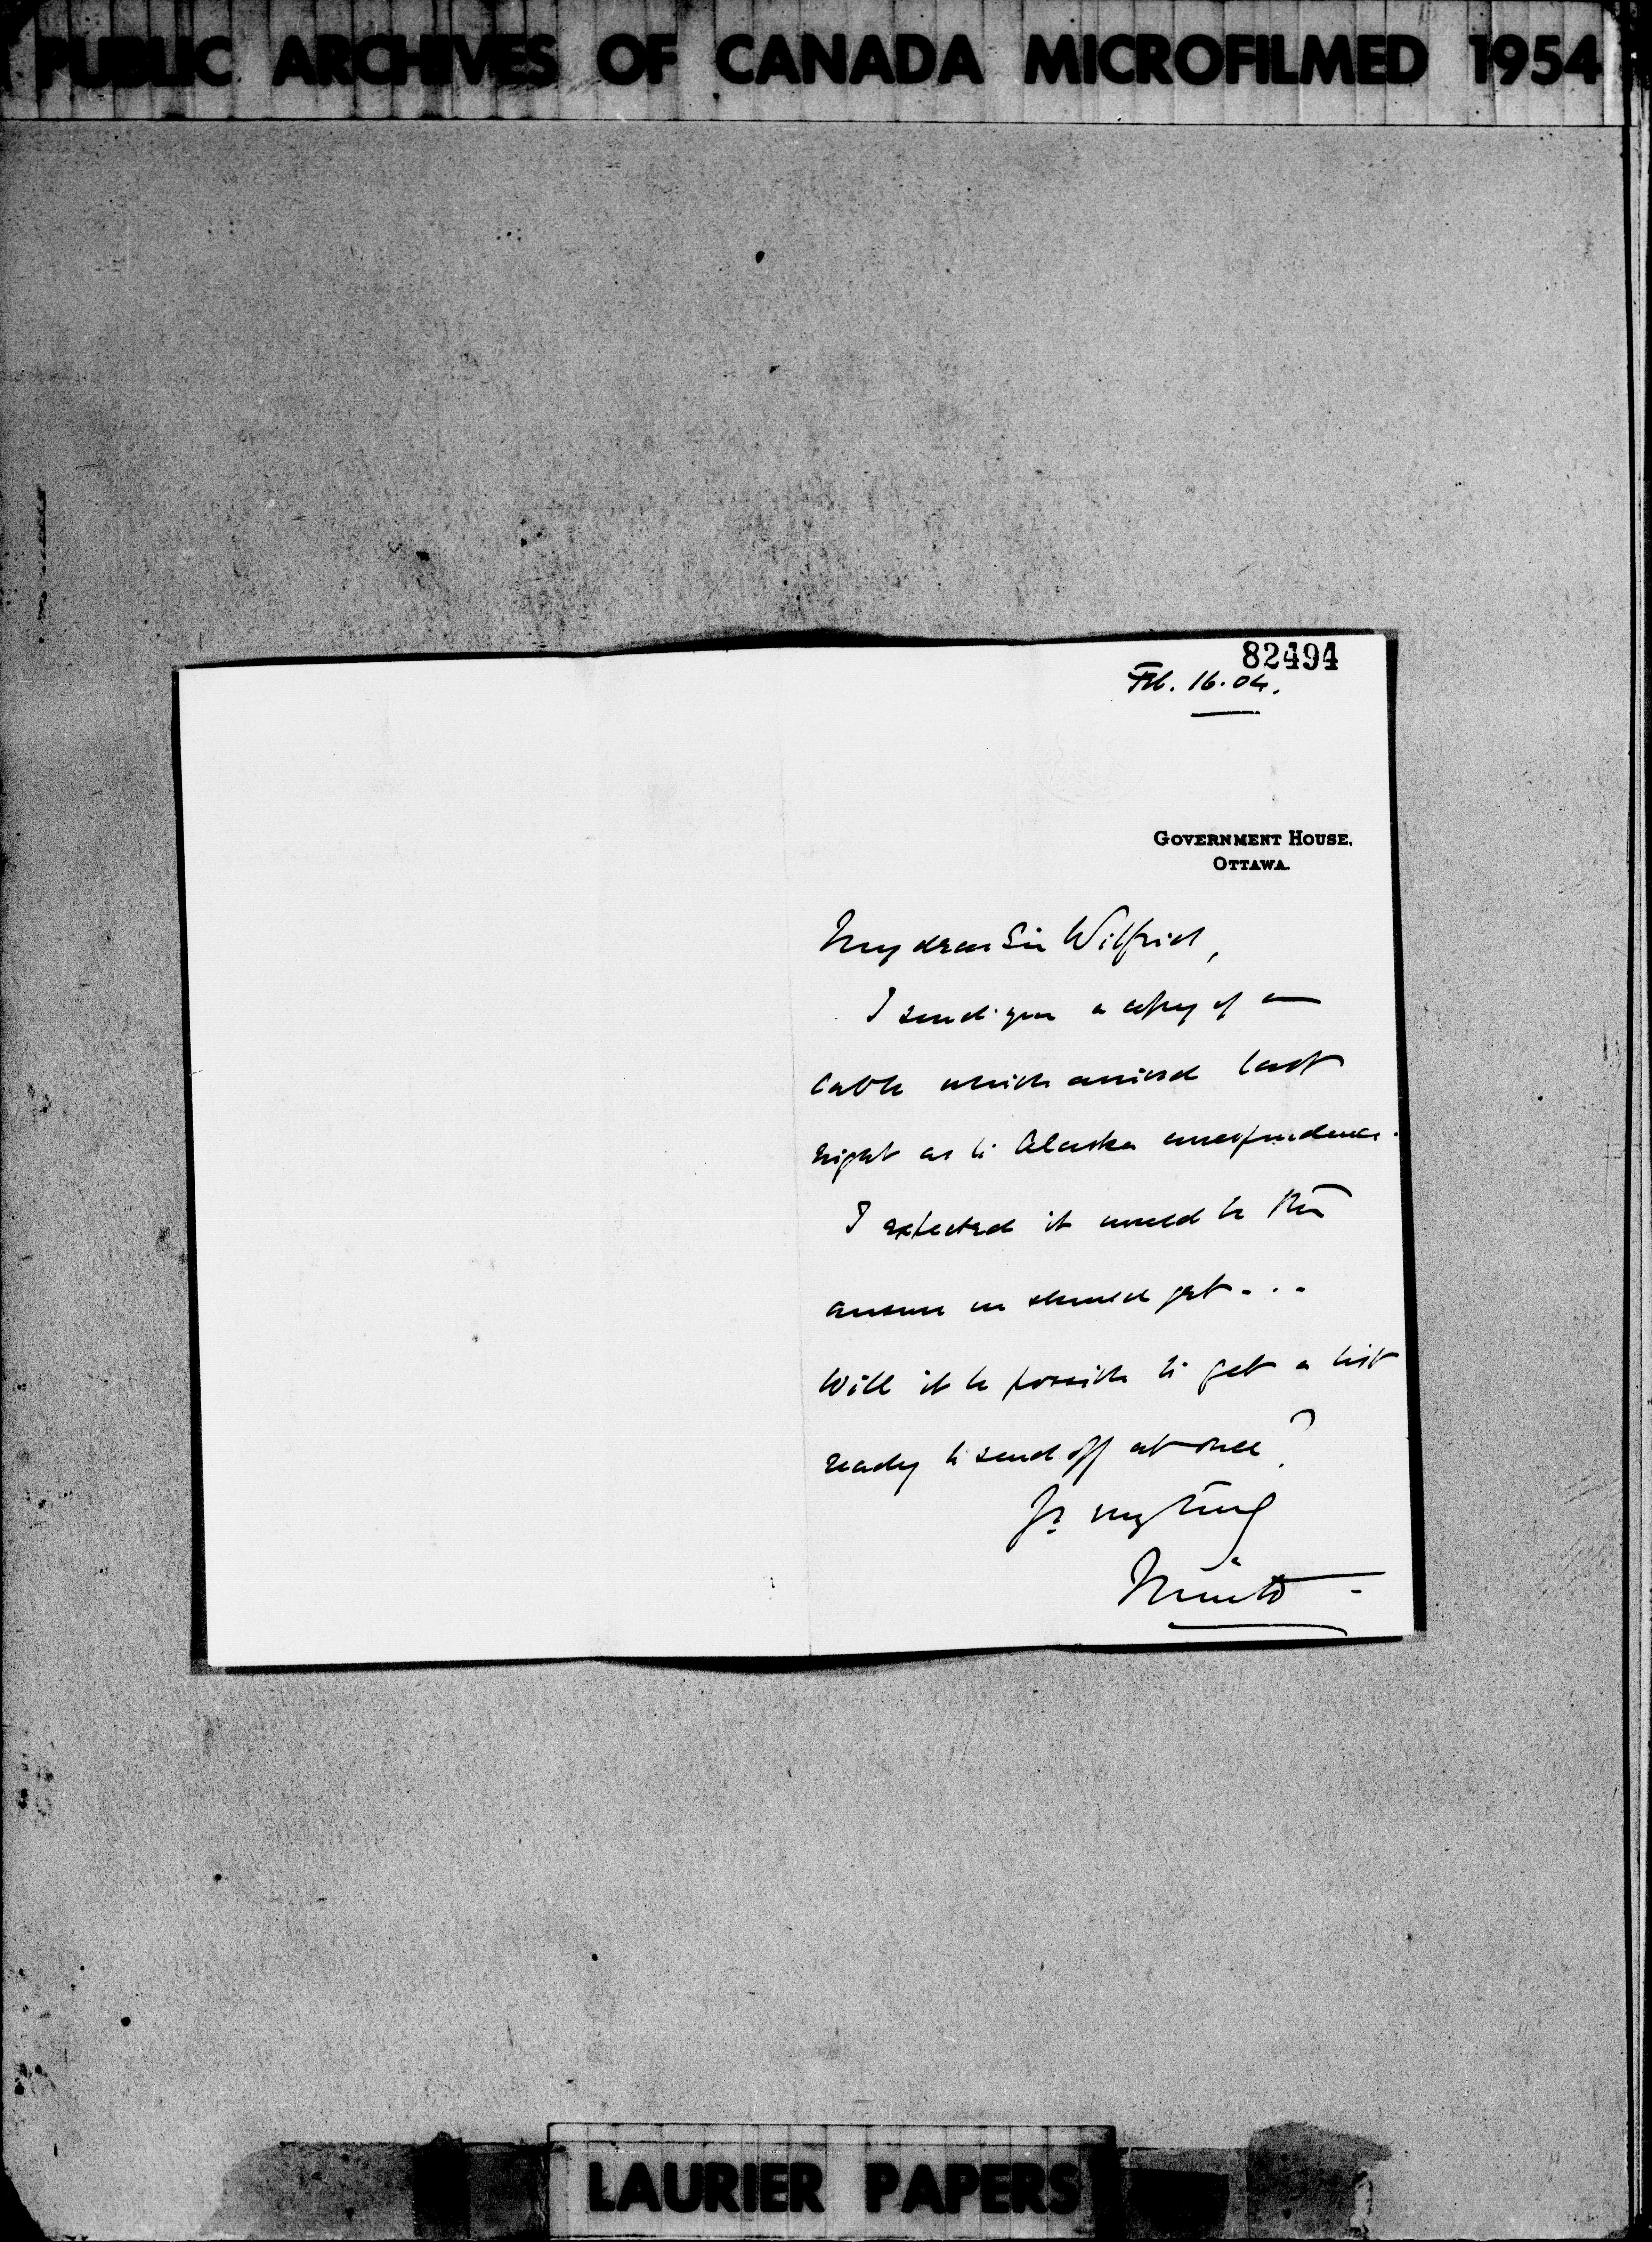 PUBLIC ARCHIVES OF CANADA MICROFILMED 1954
82494
Feb. 16. 04.
GOVERNMENT HOUSE,
OTTAWA.
My dear Sir Wilfrid,
I send you a copy of a
cable which arrived last
night as to Alaska correspondence.
I expected it would be the
answer we should get...
Will it be possible to get a list
ready to send off at once?
Yrs very truly
Minto
LAURIER PAPERS